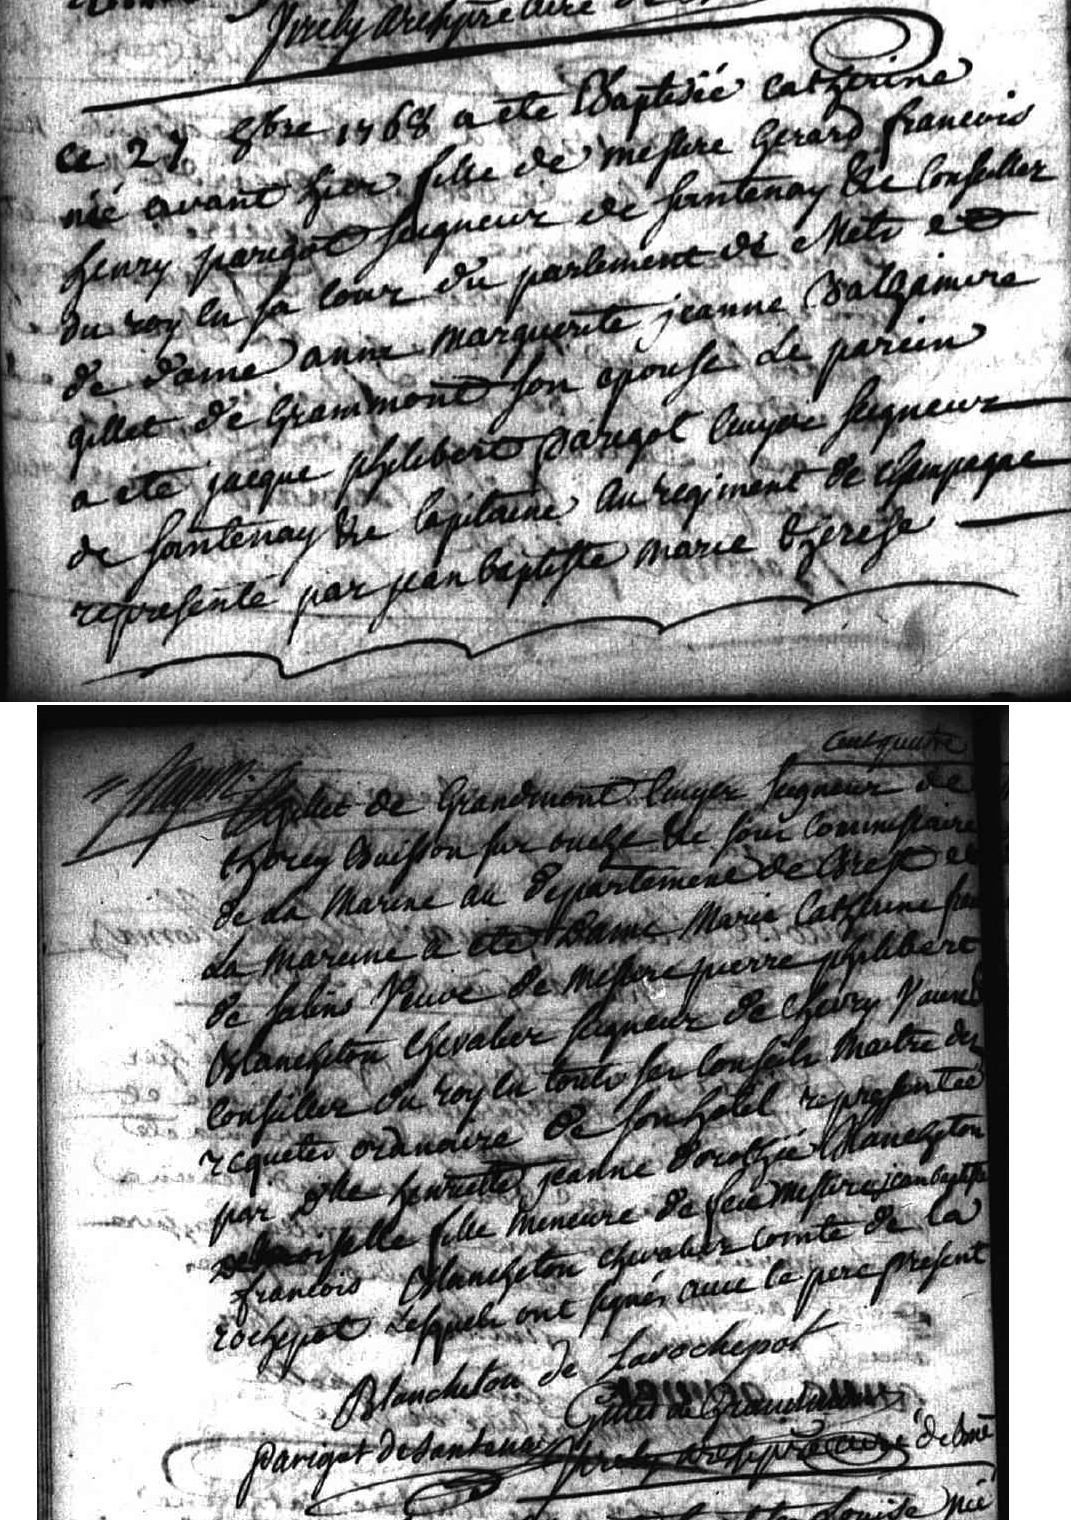 Virely archiprêtre curé de
ce 27 9bre 1768 a ete Baptisée catherine
née avant hier fille de messire Gerard francois
henry parigot seigneur de santenay &c Conseiller
du roy en sa cour du parlement de Metz et
de dame anne marguerite jeanne
gillet de Grammont son epouse Le parein
a ete jacque philibert parigot Ecuyer seigneur
de santenay &c Capitaine au regiment de Champagne
representé par jean baptiste marie therese
cent quatre
gillet de Grandmont Ecuyer seigneur de
thorey Buisson sur ouche &c sous commissaire
de La Marine au departement de Brest et
La mareine a ete Dame Marie Catherine
de salins Veuve de Messire pierre philibert
Blancheton Chevalier seigneur de Chevry
Conseiller du roy en tous ses conseils Maitre des
requetes ordinaire de son hotel representée
par dlle henriette jeanne dorothée Blancheton
demoiselle fille mineure de feu Messire jean baptiste
francois Blancheton chevalier comte de la
rochepot Lesquels ont signés avec le pere present
Blancheton de Larochepot
Gillet de Grandmont
parigot de Santenay Virely archiprêtre curé de
Louise née